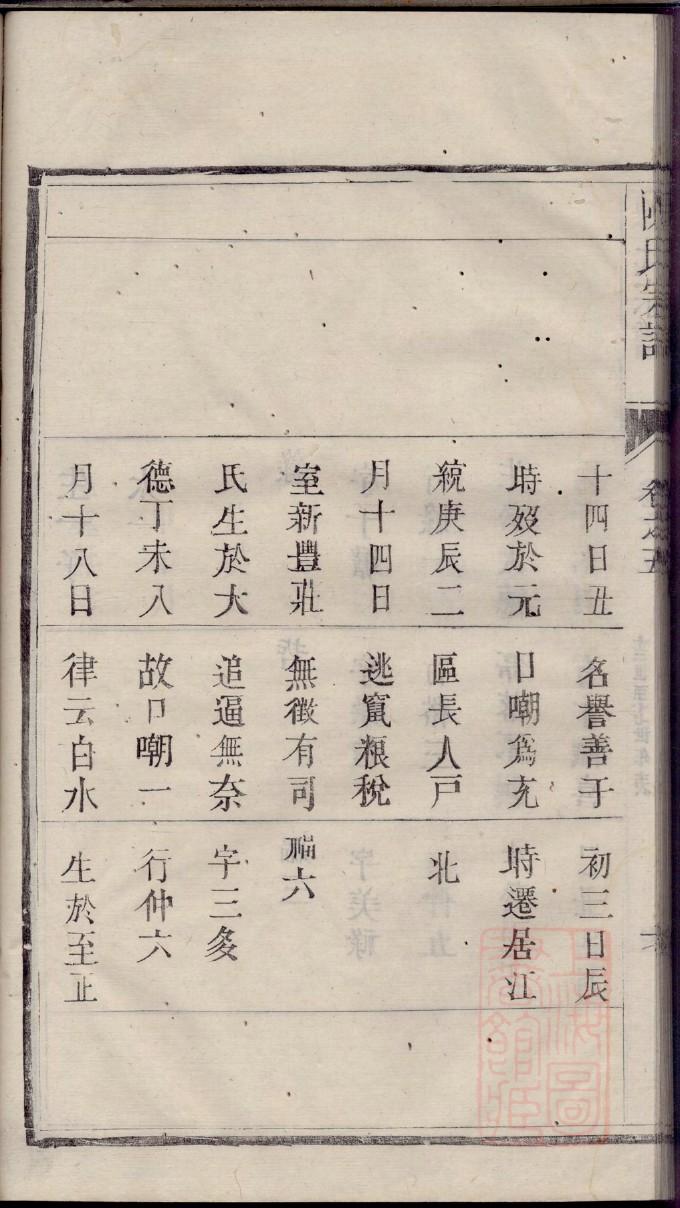 氏宗譜
卷之五
十四日丑
時歿於元
統庚辰二
月十四日
室新豐莊
氏生於大
德丁未八
月十八日
名譽善于
口嘲爲充
區長人戶
逃竄粮稅
無徵有司
追逼無奈
故口嘲一
律云白水
初三日辰
時遷居江
北
福六
字三多
行仲六
生於至正
上海圖
書館藏